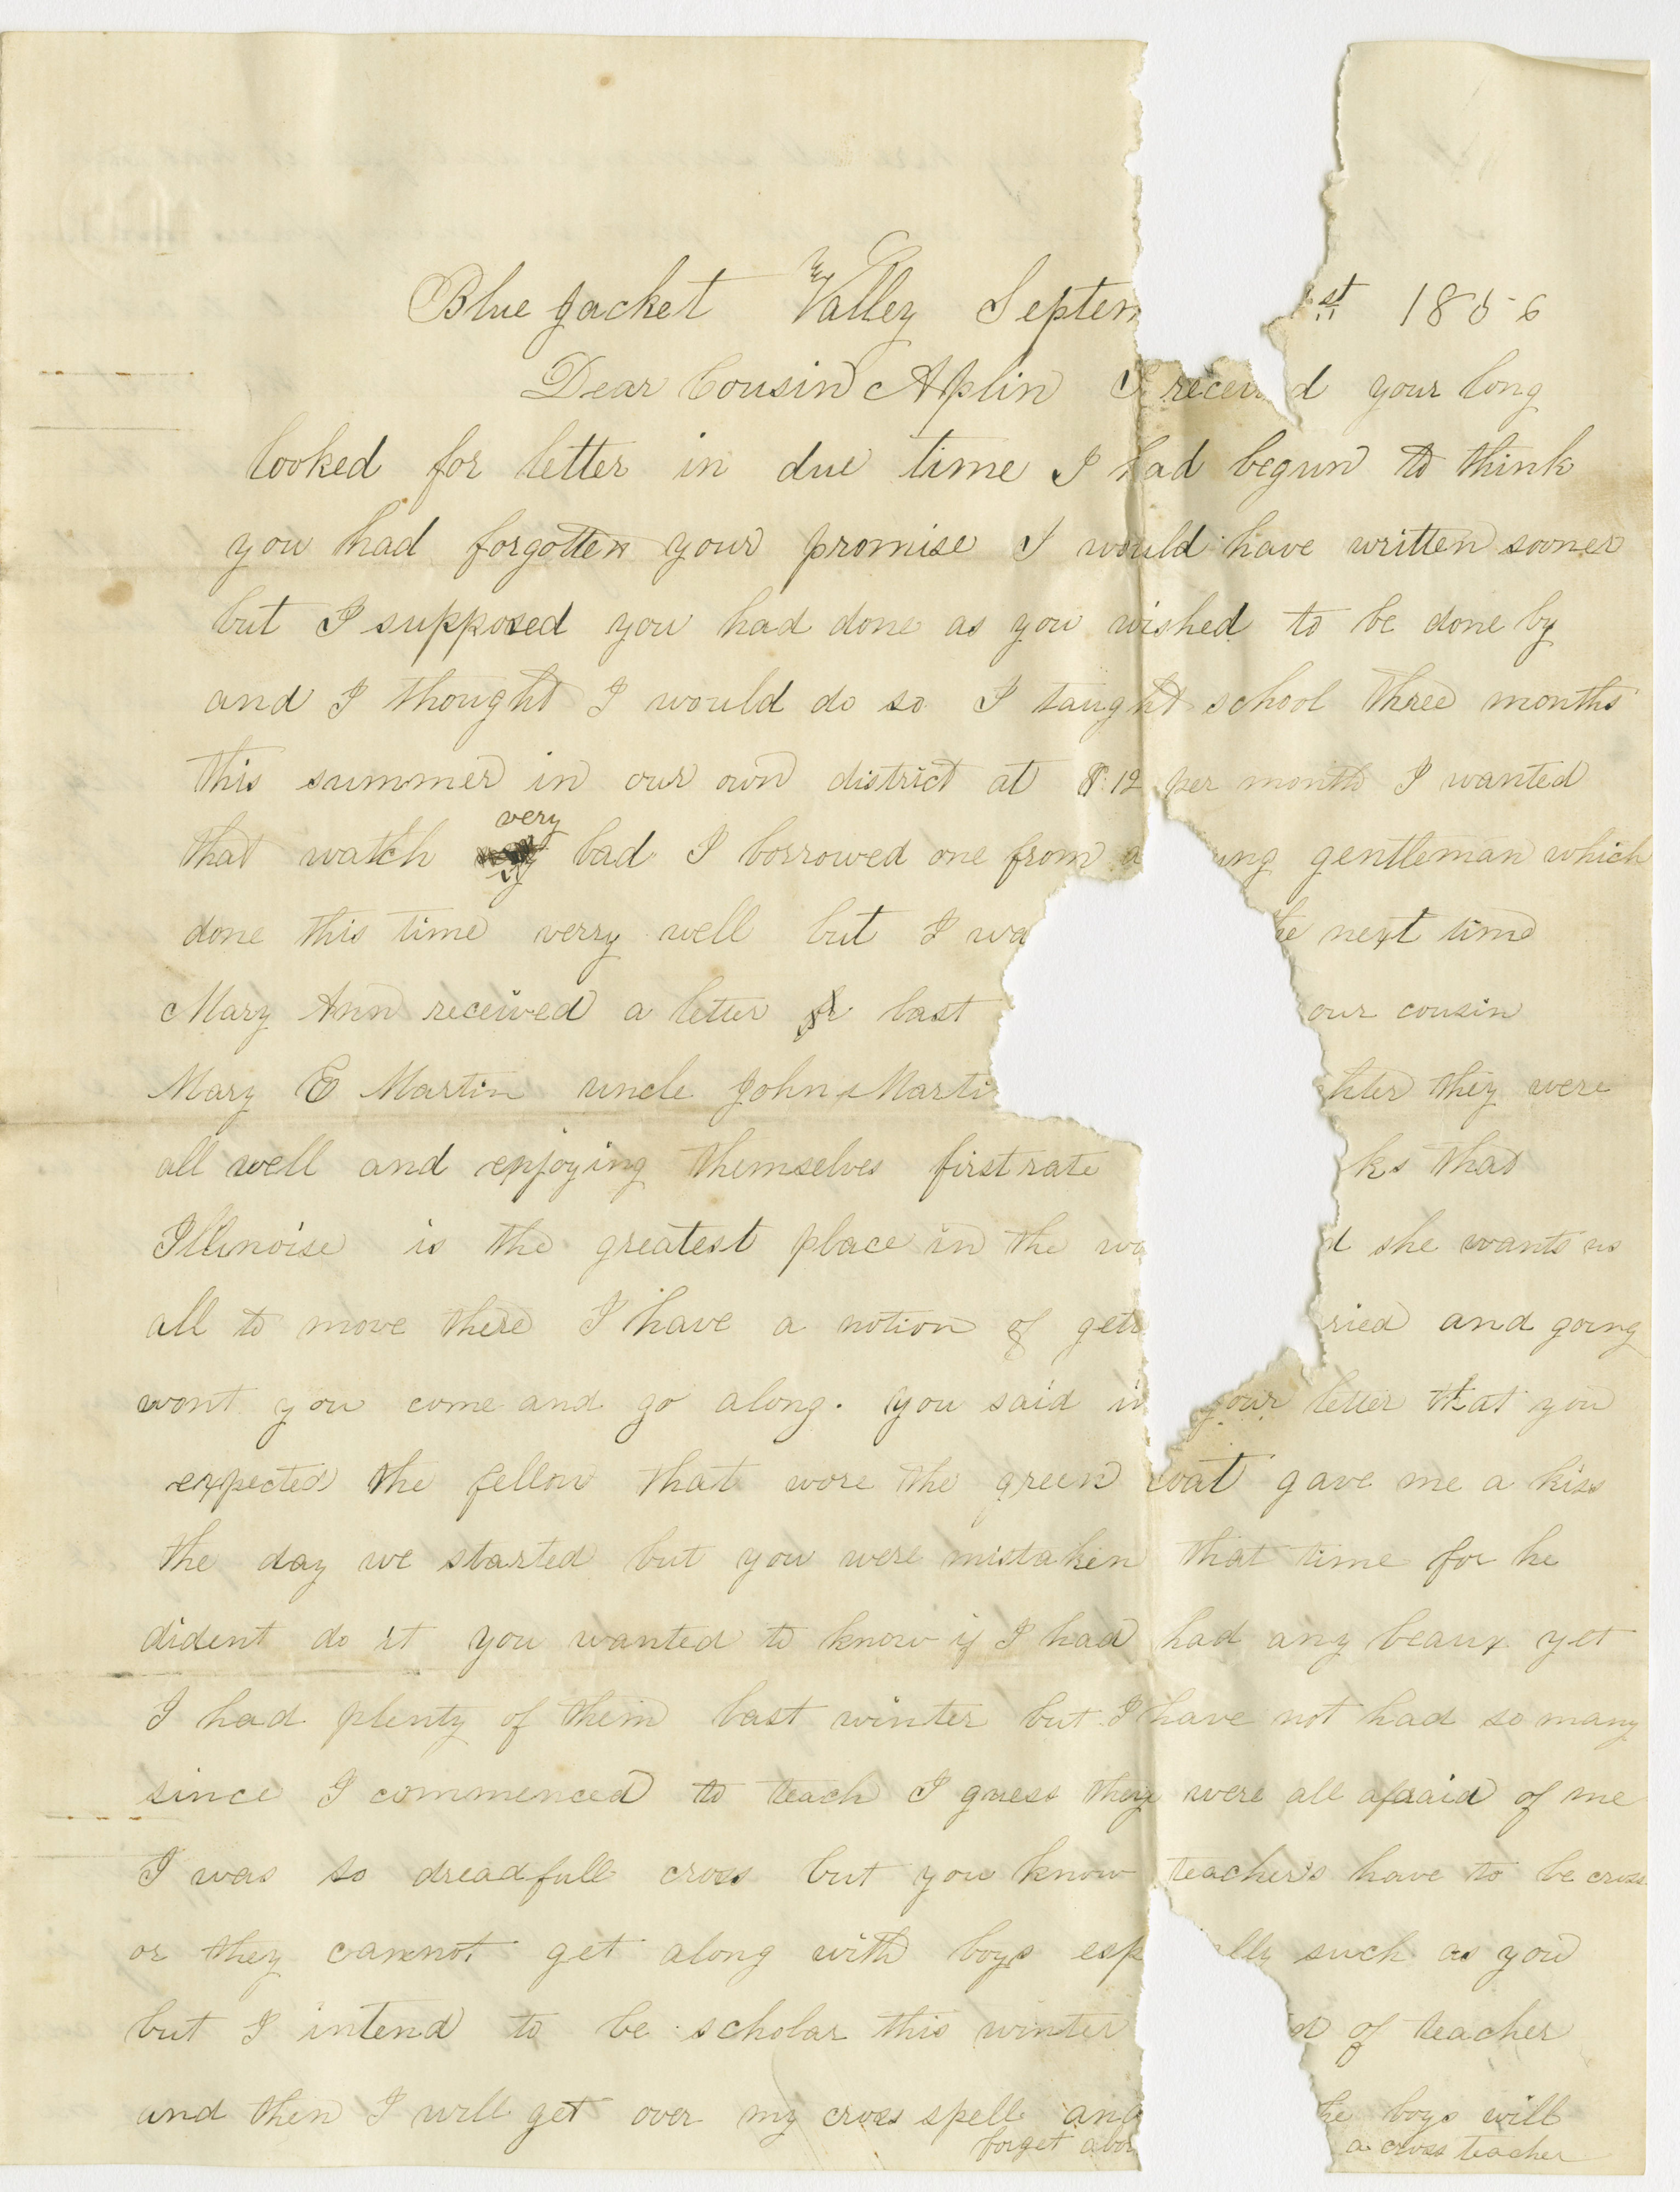 Blue Jacket Valley Septem st 1856
Dear Cousin Aplin I received your long
looked for letter in due time I had begun to think
you had forgotten your promise I would have written sooner
but I supposed you had done as you wished to be done by
and I thought I would do so I taught school three months
this summer in our own district at $.12 per month I wanted
very
that watch bad I borrowed one from a ung gentleman which
done this time verry well but I wa he next time
Mary Ann received a letter last our cousin
Mary E Martin uncle John Marti hter they were
all well and enjoying themselves first rate ks that
Illinoise is the greatest place in the wo d she wants us
all to move there I have a notion of gett ried and going
wont you come and go along. you said in your letter that you
expected the fellow that wore the green coat gave me a kiss
the day we started but you were mistaken that time for he
dident do it you wanted to know if I had had any beaux yet
I had plenty of them last winter but I have not had so many
since I commenced to teach I guess they were all afraid of me
I was so dreadfull cross but you know teacher's have to be cross
or they cannot get along with boys esp ally such as you
but I intend to be scholar this winter d of teacher
and then I will get over my cross spell and he boys will
forget abou a cross teacher